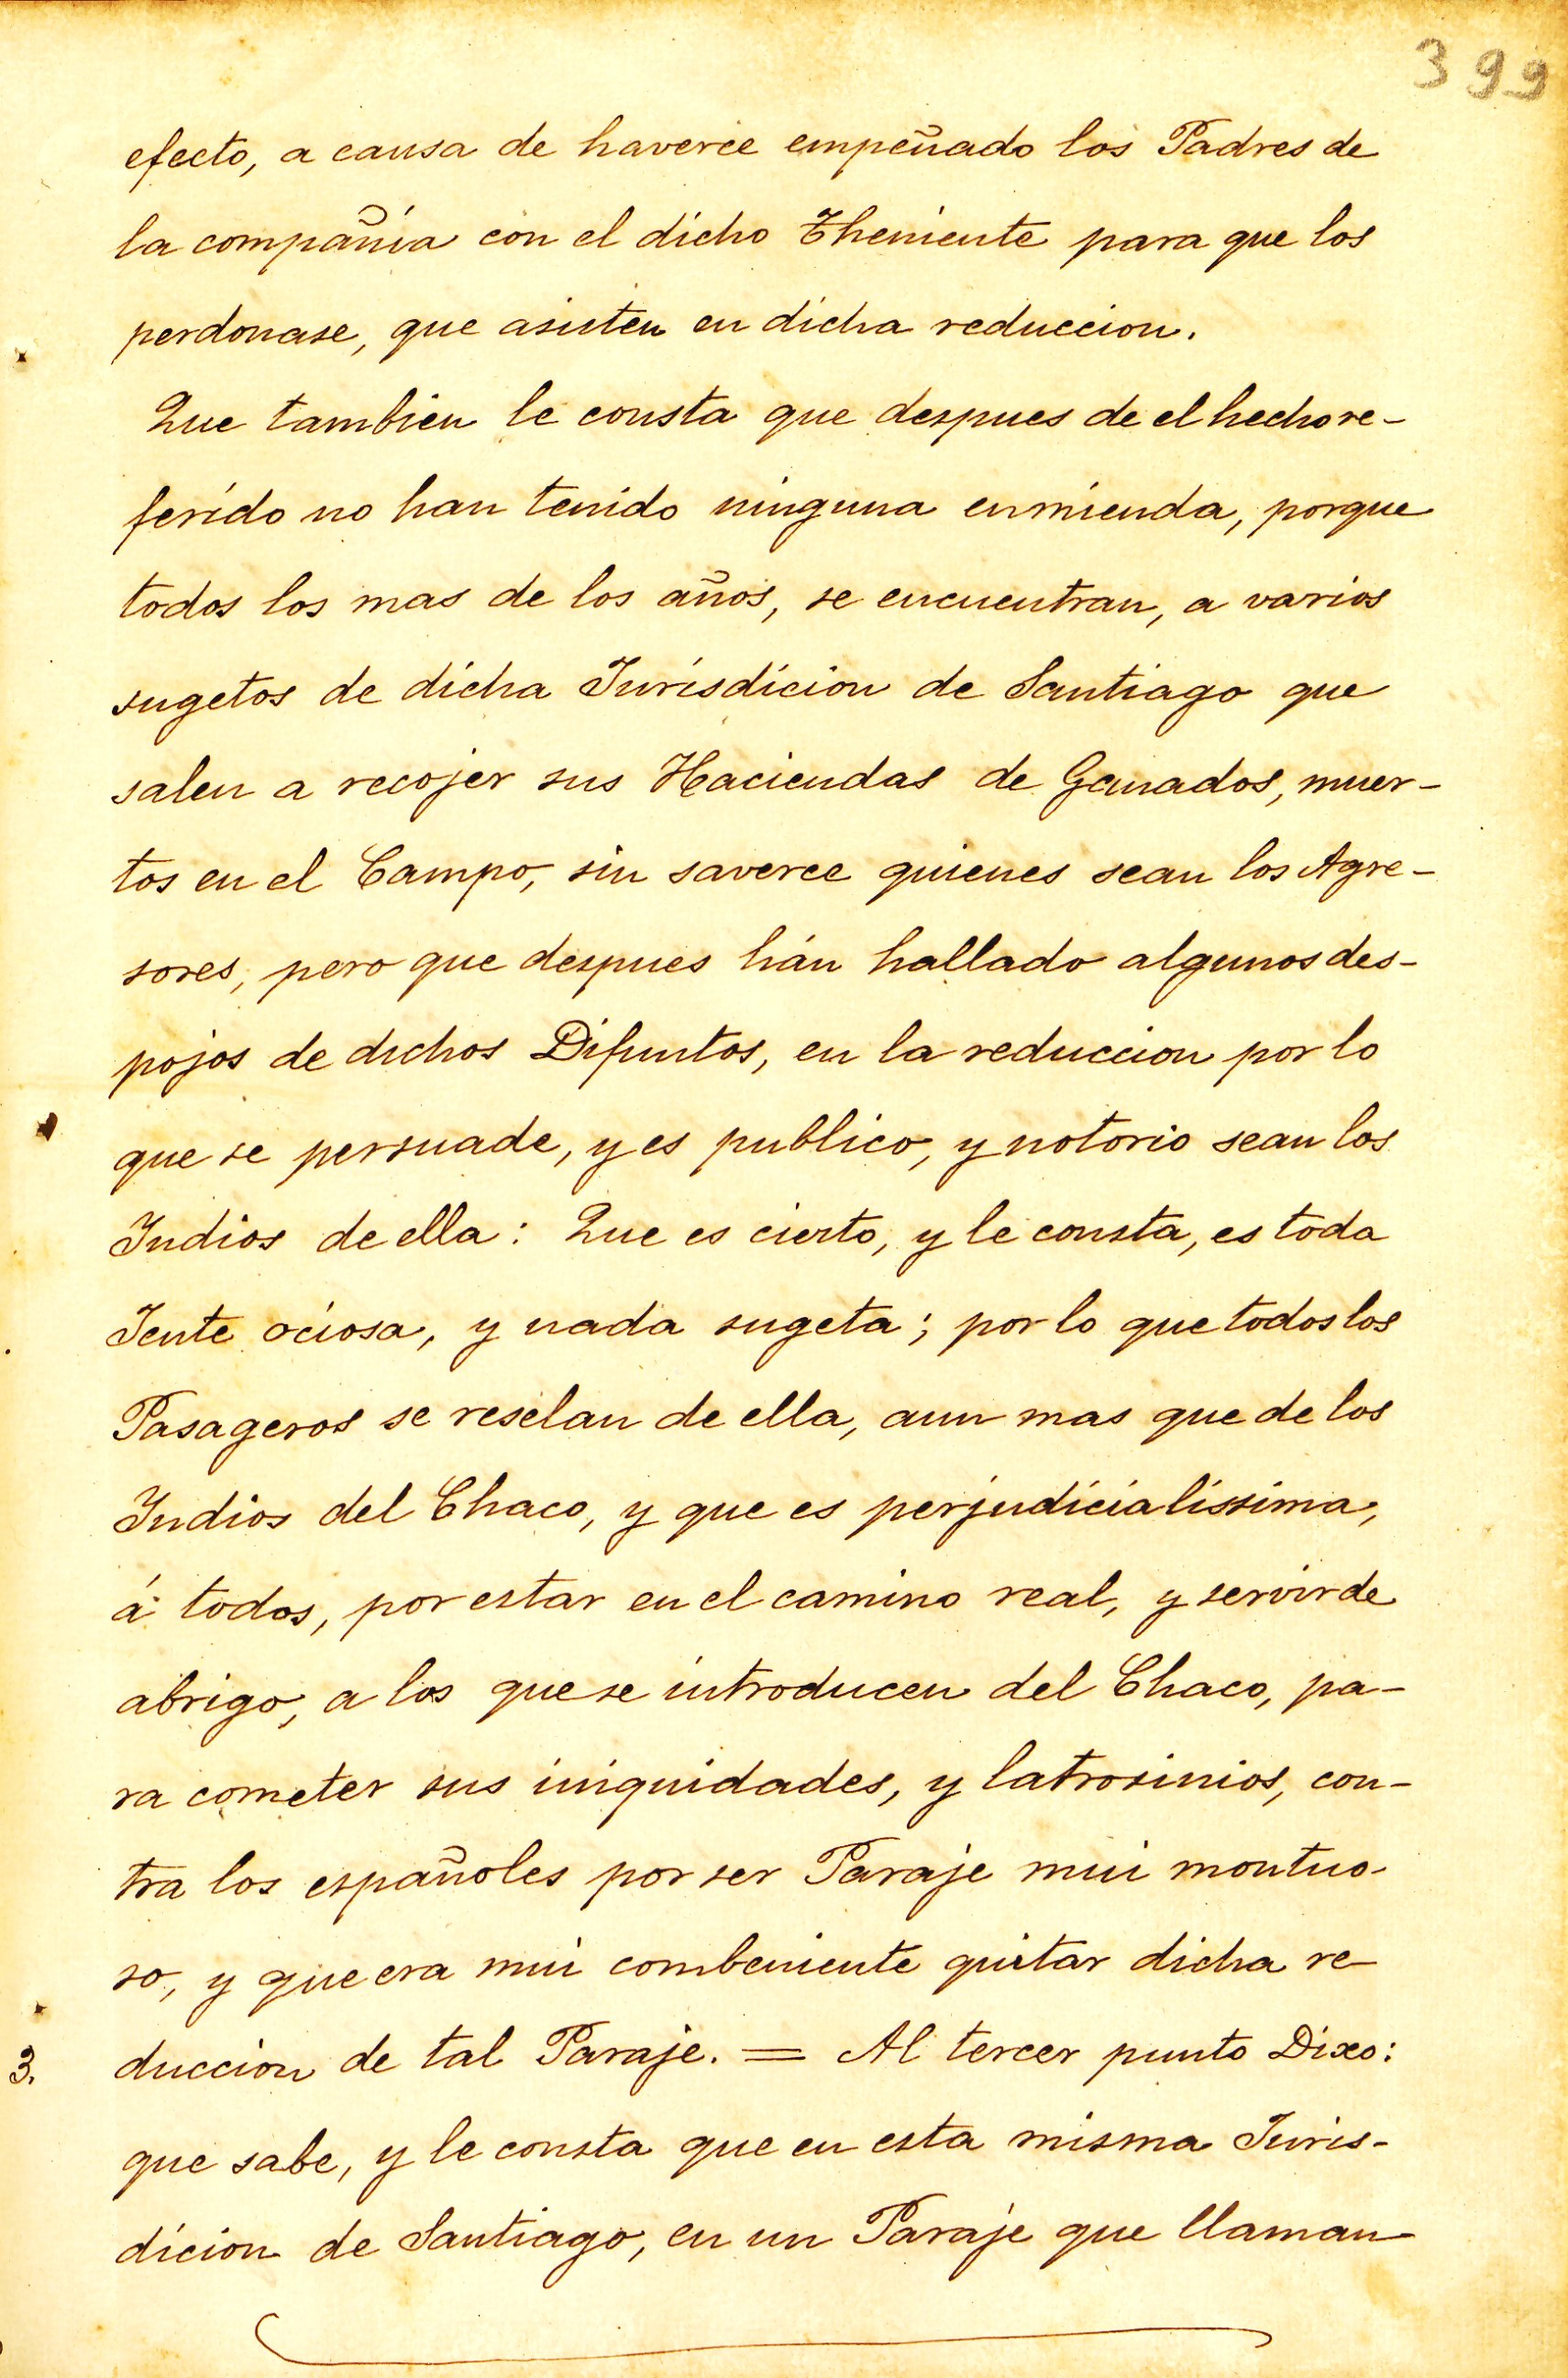 399
efecto, a causa de haverce empeñado los Padres de
la compañia con el dicho Theniente para que los
perdonase, que asisten en dicha reduccion.
Que tambien le consta que despues de el hecho re-
ferido no han tenido ninguna enmienda, porque
todos los mas de los años, se encuentran, a varios
sugetos de dicha Jurisdicion de Santiago que
salen a recojer sus Haciendas de Ganados, muer-
tos en el Campo, sin saverce quienes sean los Agre-
sores, pero que despues hán hallado algunos des-
pojos de dichos Difuntos, en la reduccion por lo
que se persuade, y es publico, y notorio sean los
Indios de ella: Que es cierto, y le consta, es toda
Jente ociosa, y nada sugeta; por lo que todos los
Pasageros se reselan de ella, aun mas que de los
Indios del Chaco, y que es perjudicialissima,
á todos, por estar en el camino real, y servir de
abrigo, a los que se introducen del Chaco, pa-
ra cometer sus iniquidades, y latrosinios, con-
tra los españoles por ser Paraje mui montuo-
so, y que era mui combeniente quitar dicha re-
3. duccion de tal Paraje. = Al tercer punto Dixo:
que sabe, y le consta que en esta misma Juris-
dicion de Santiago, en un Paraje que llaman